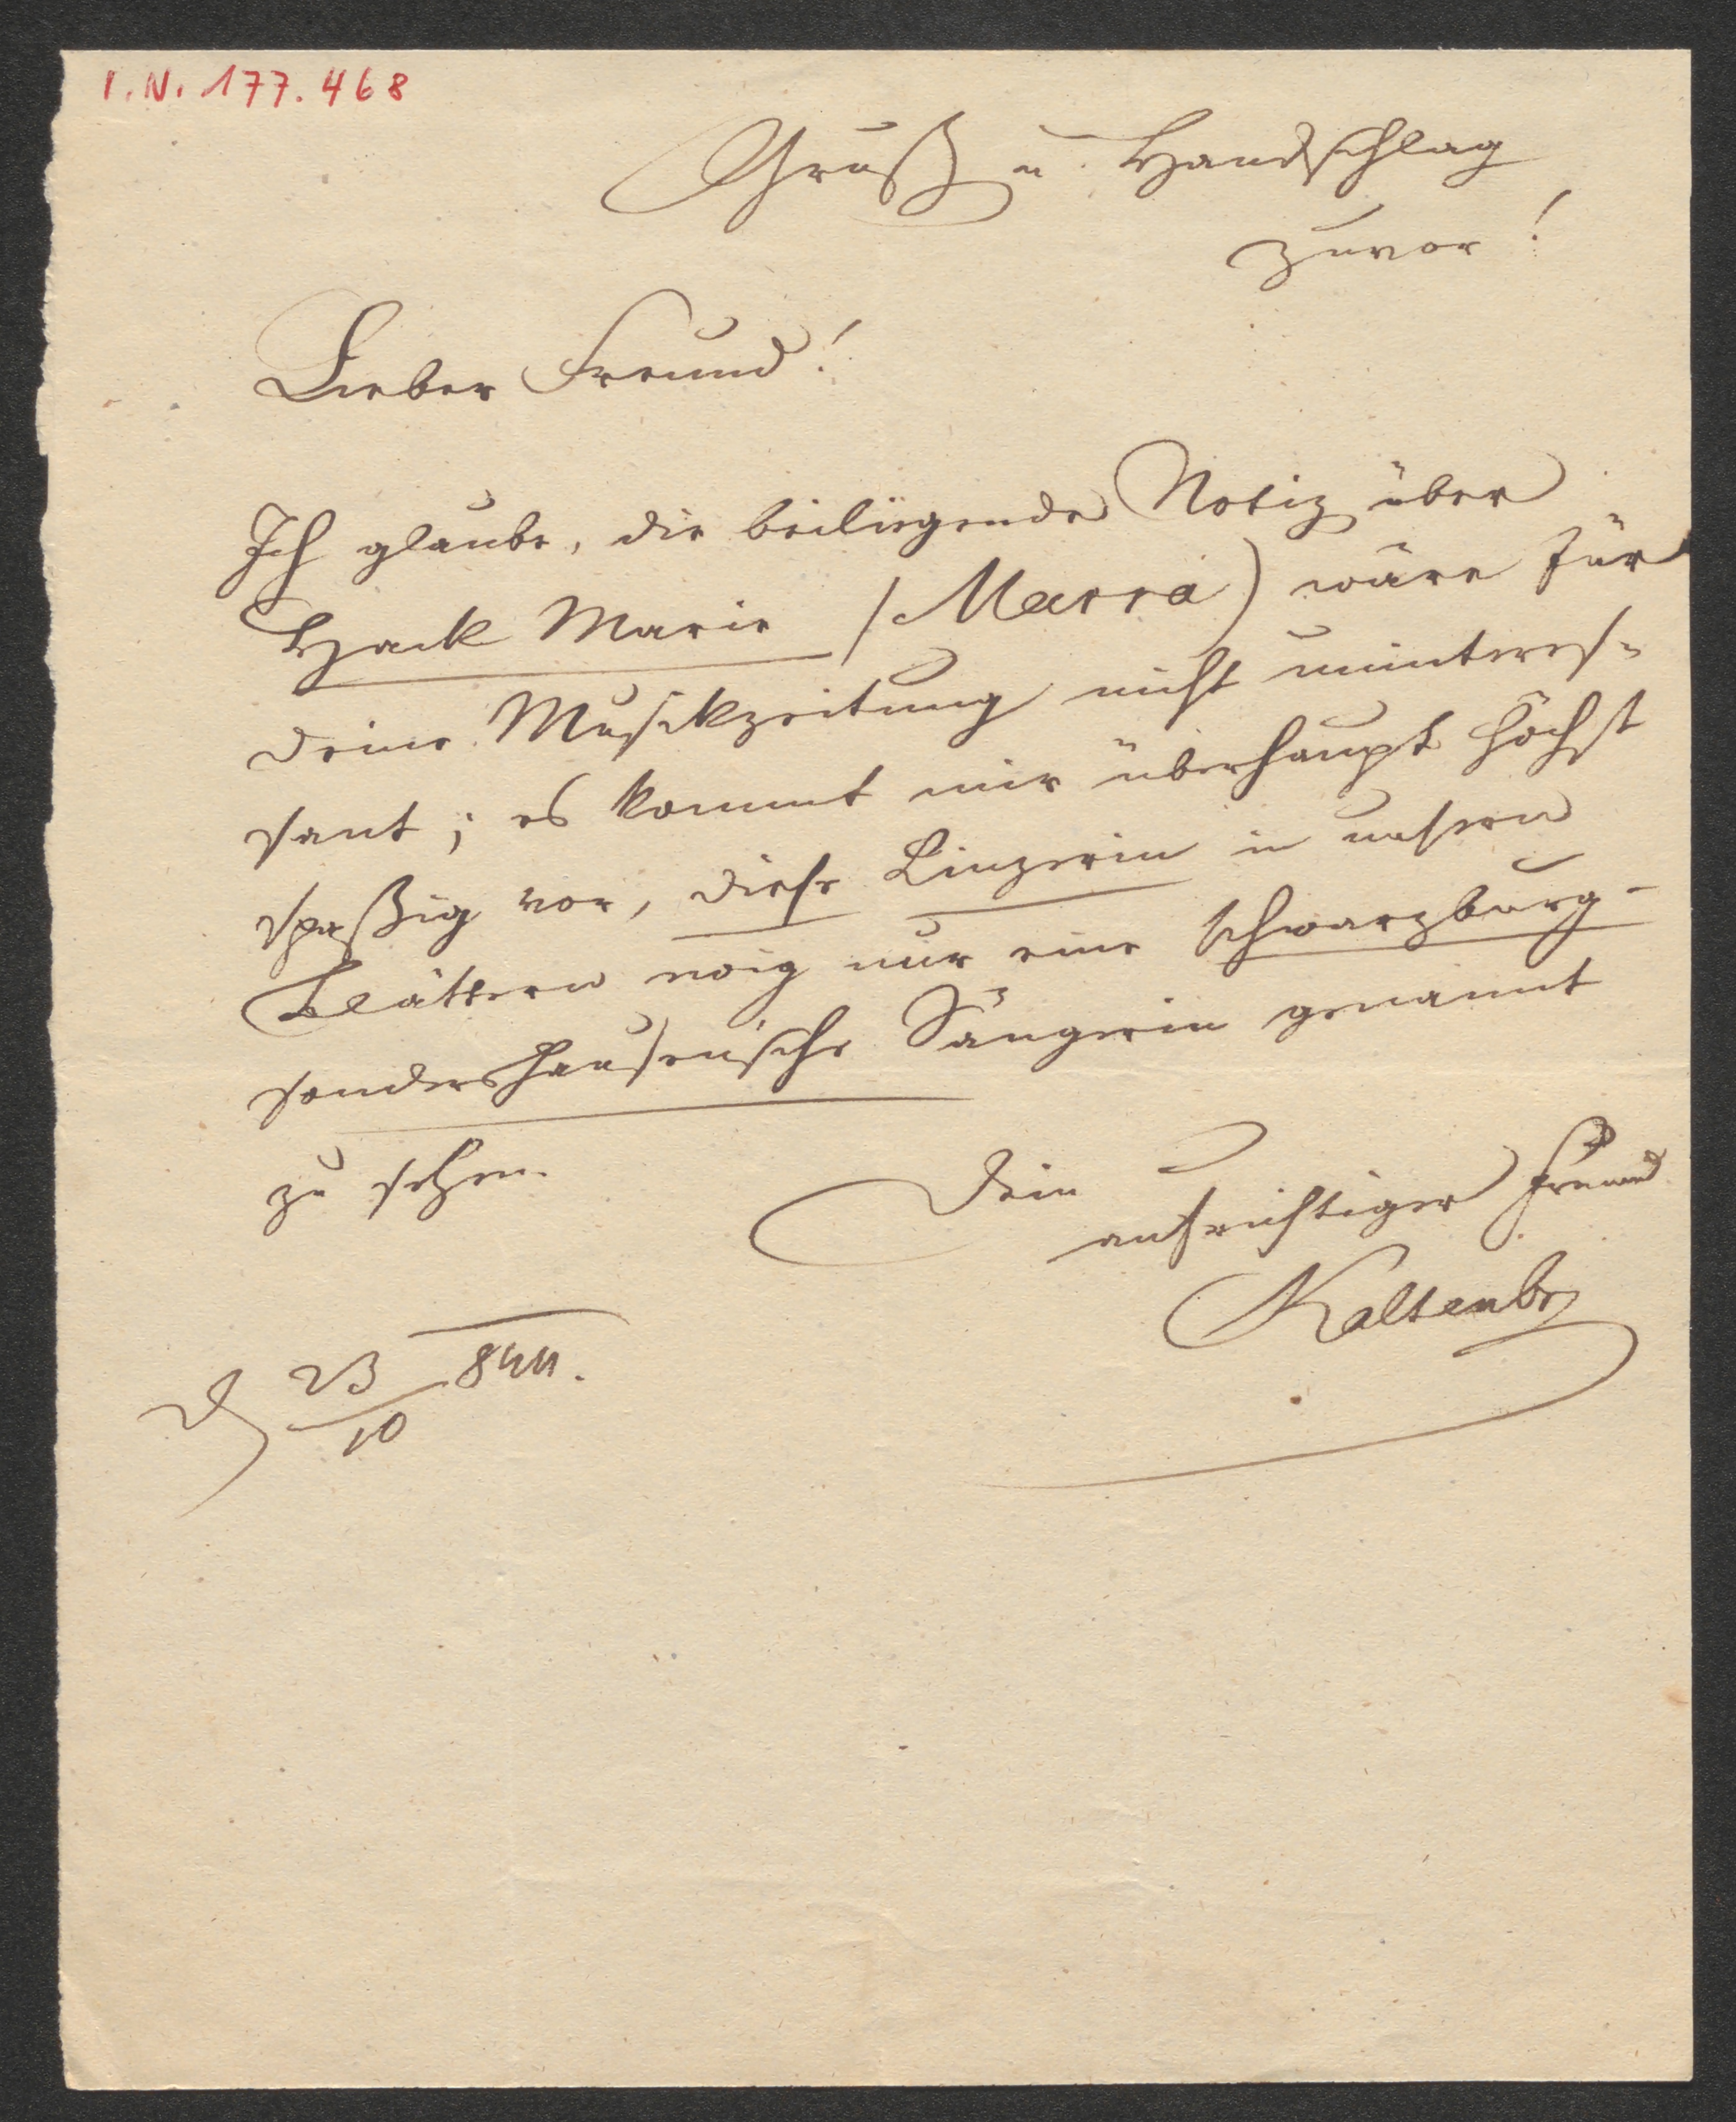 I. N. 177.468
Gruß u. Handschlag
zuvor!
Lieber Freund!
Ich glaube, die beiliegende Notiz über
Hack Marie (Marra) wäre für
deine Musikzeitung nicht uninteres-
sant; es kommt mir überhaupt höchst
spaßig vor, diese Linzerin in unsern
Blättern ewig nur eine schwarzburg-
sondershausensche Sängerin genannt
zu sehen.
Dein
aufrichtiger Freund
Kaltenb
d 23/10 844.